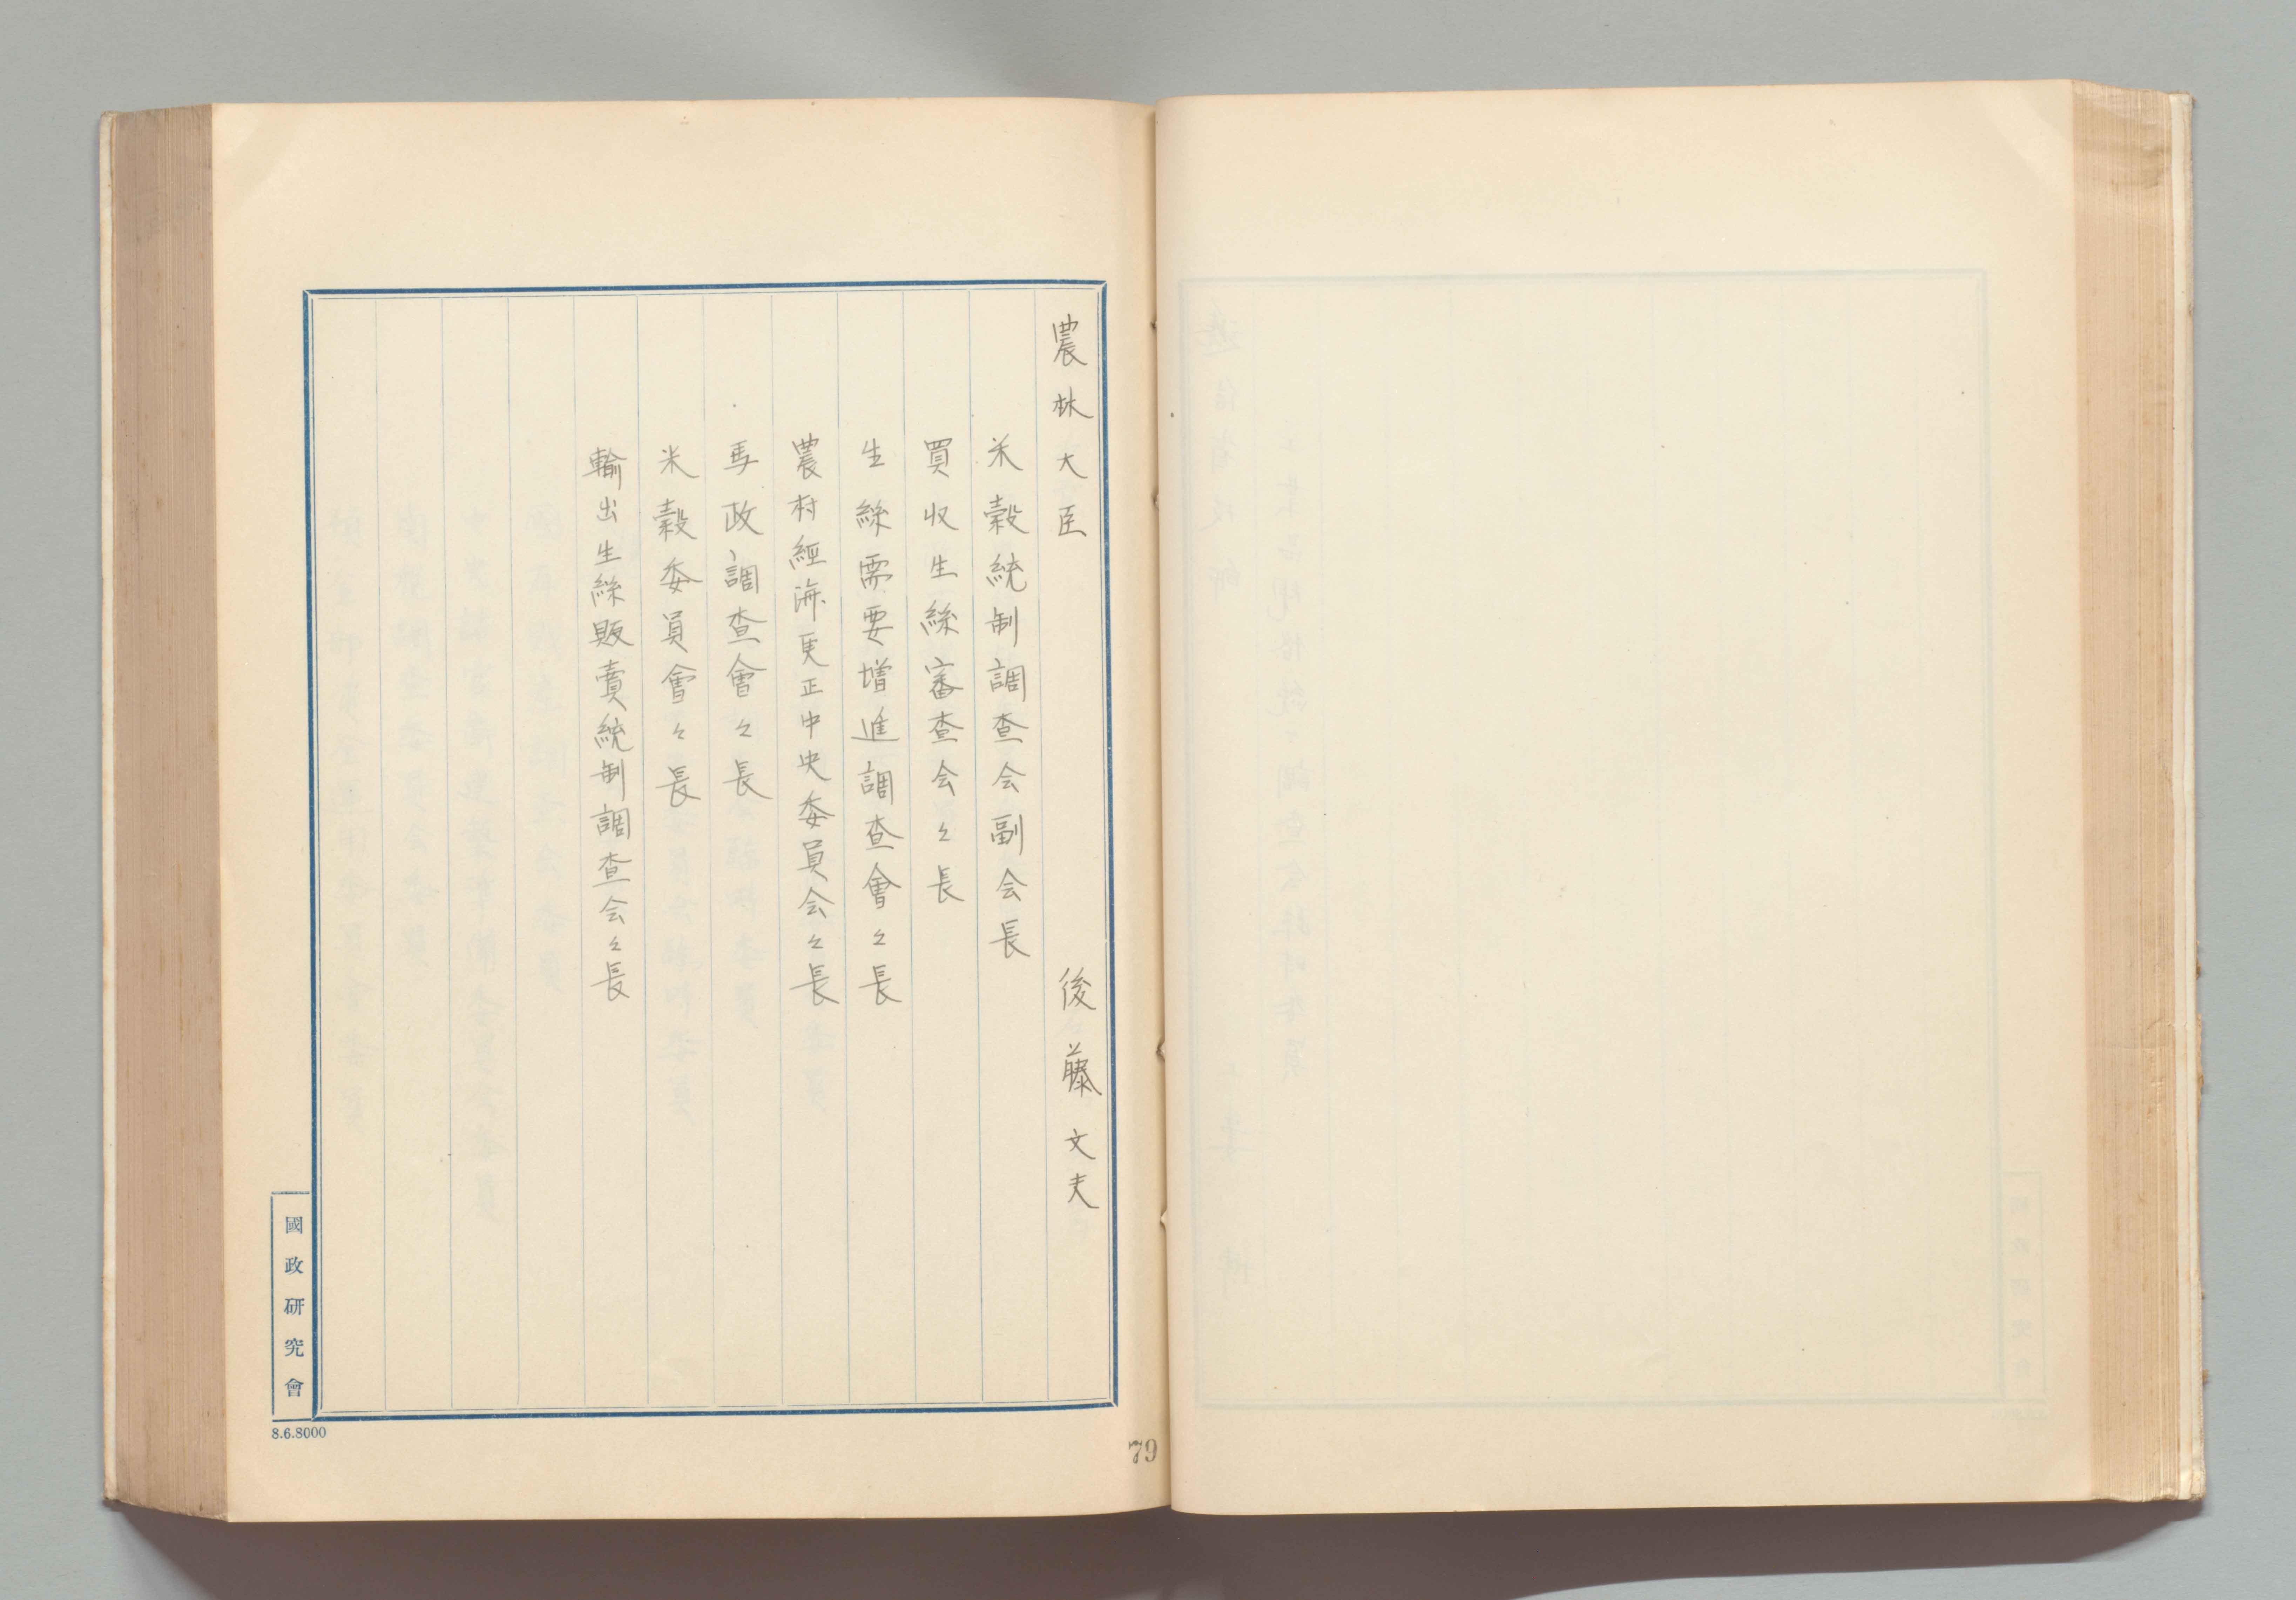 農林大臣　後藤文夫
米穀統制調査会副会長
買收生絲審査会々長
生絲需要増進調査會々長
農村經済更正中央委員会々長
馬政調査會々長
米穀委員會々長
輸出生絲販賣統制調査会々長
國政研究會
8.6.8000
79